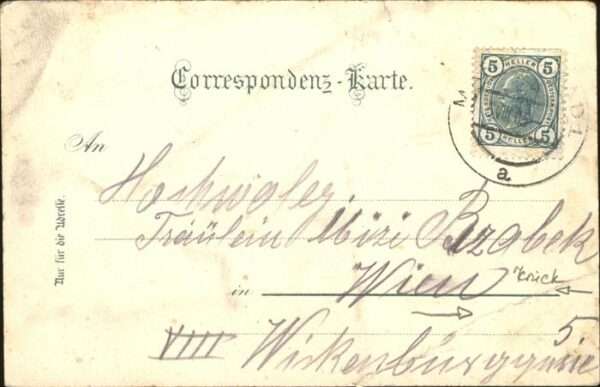 Correspondenz-Karte.
5 HELLER 5
5 HELLER 5
a
An
Nur für die Adresse.
Fräulein Mizi
in Wien
VIII Wickenburggasse 5